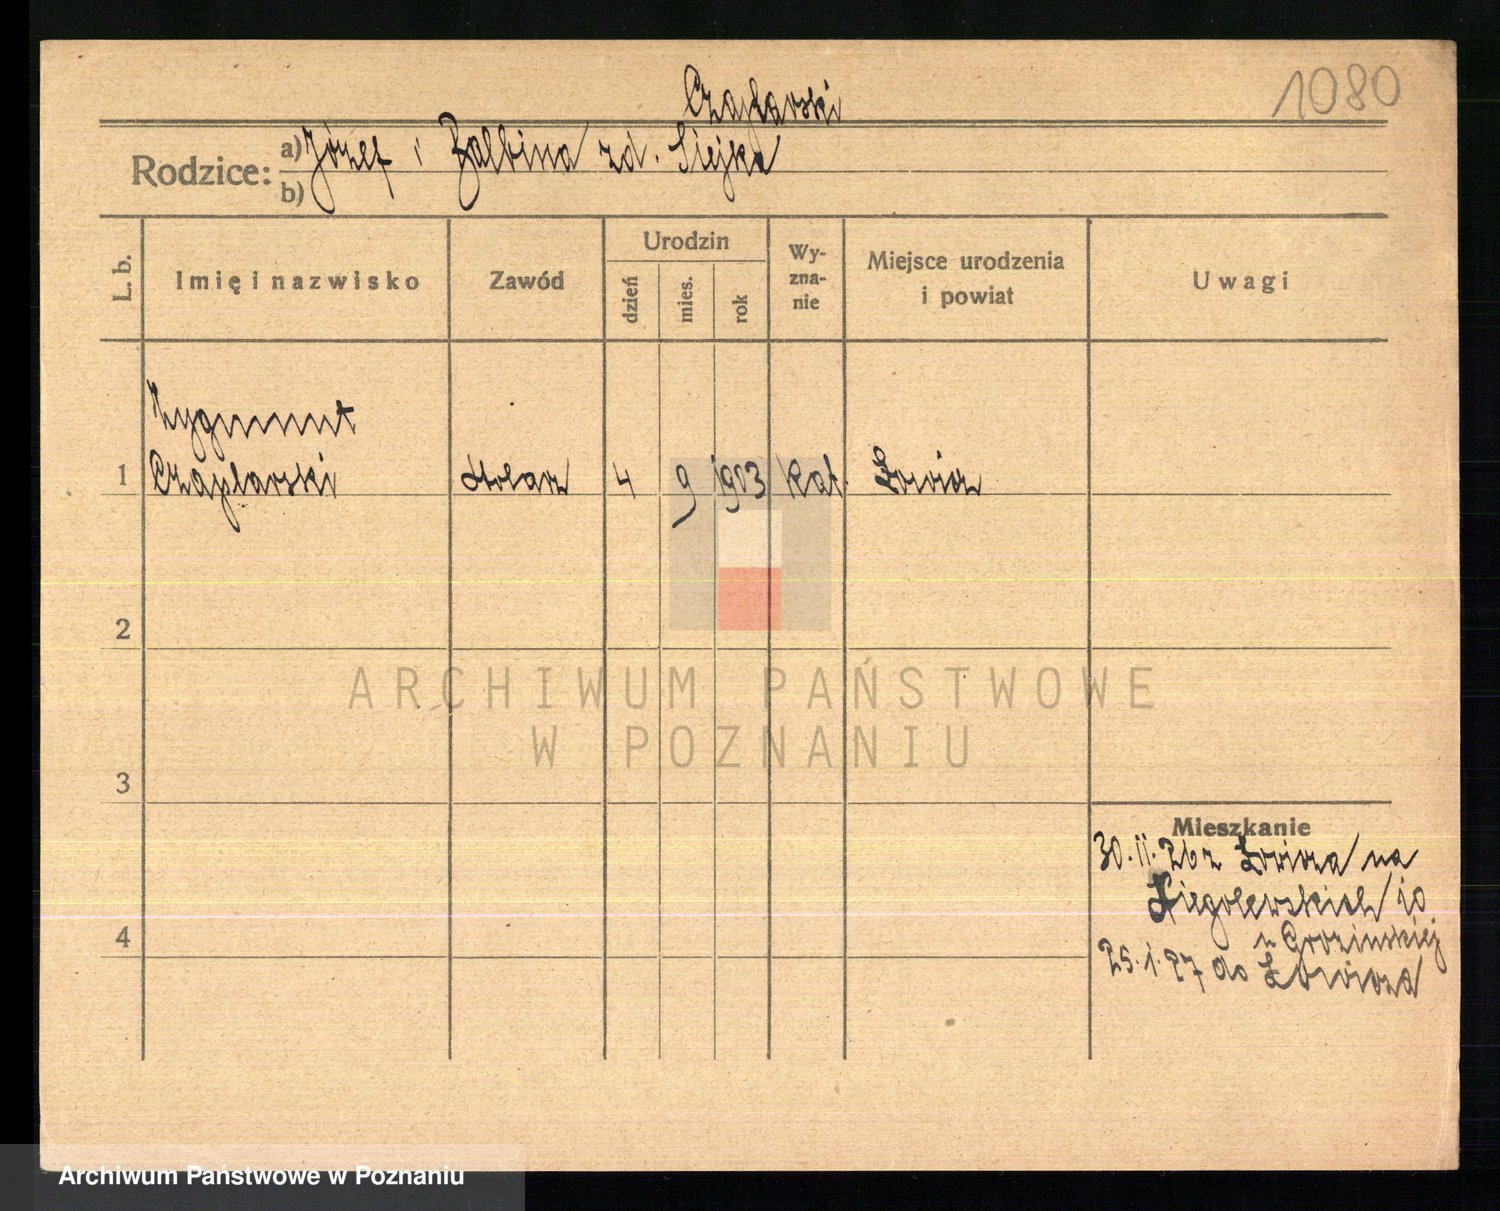 1080
Czaplarski
Rodzice: a) Józef i Balbina zd. Siejka
b)
L. b.
Imię i nazwisko
Zawód
Urodzin
dzień
mies.
rok
Wy-
zna-
nie
Miejsce urodzenia
i powiat
Uwagi
Zygmunt
1 Czaplarski stolarz 4 9 1903 kat. Łowicz
2
ARCHIWUM PAŃSTWOWE
W POZNANIU
3
Mieszkanie
30.11.26 z Łowicza na
Niegolewskich 10
4
u Grozinskiej
25.1.27 do Łowicza
Archiwum Państwowe w Poznaniu